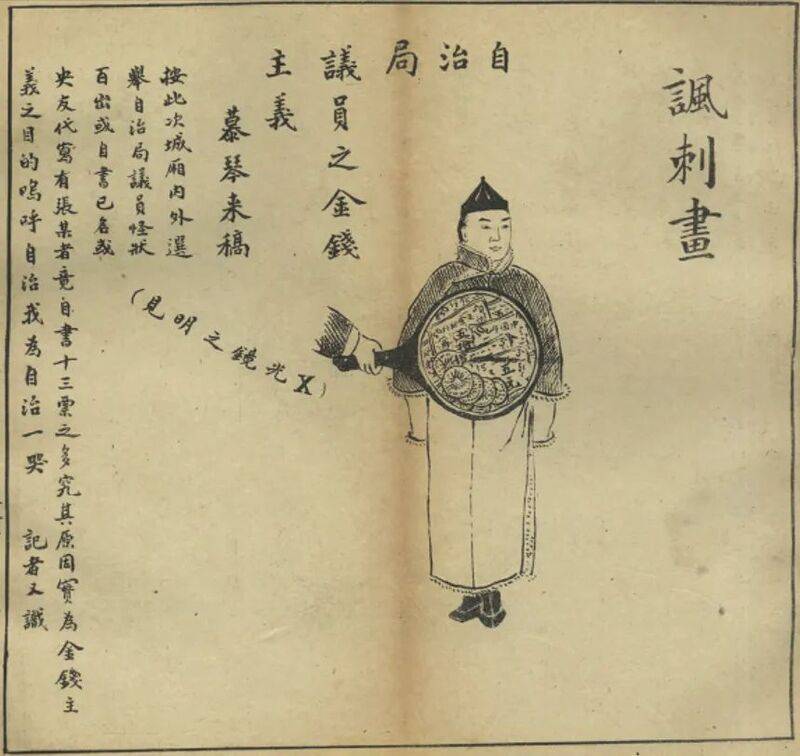 諷刺畫
自治局
議員之金錢
主義
慕琴来稿
按此次城廂内外選
舉自治局議員怪狀
百出或自書已名或
央友代寫有張某者竟自書十三票之多究其原因實為金錢主
義之目的嗚呼自治我為自治一哭 記者又識
(X光鏡之明見)
五